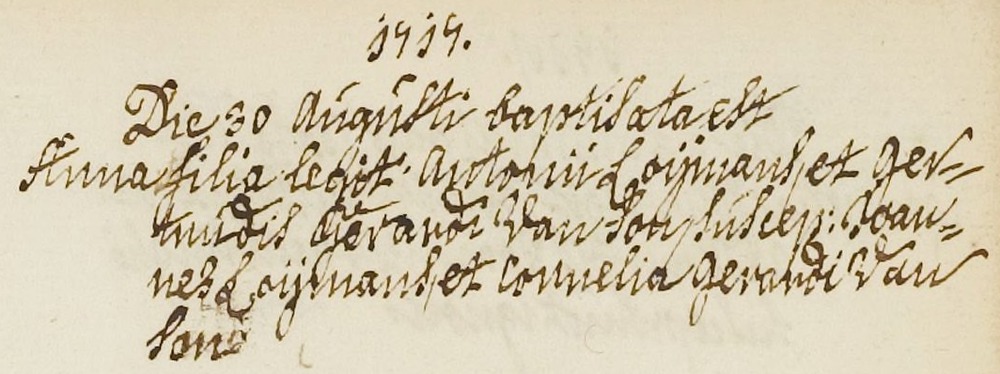 1717.
Die 30 Augusti baptisata est
Anna filia legit. Antonii Loijmans et Ger-
trudis Gerardi Van Son suscep: Joan-
nes Loijmans et Cornelia Gerardi Van
Son